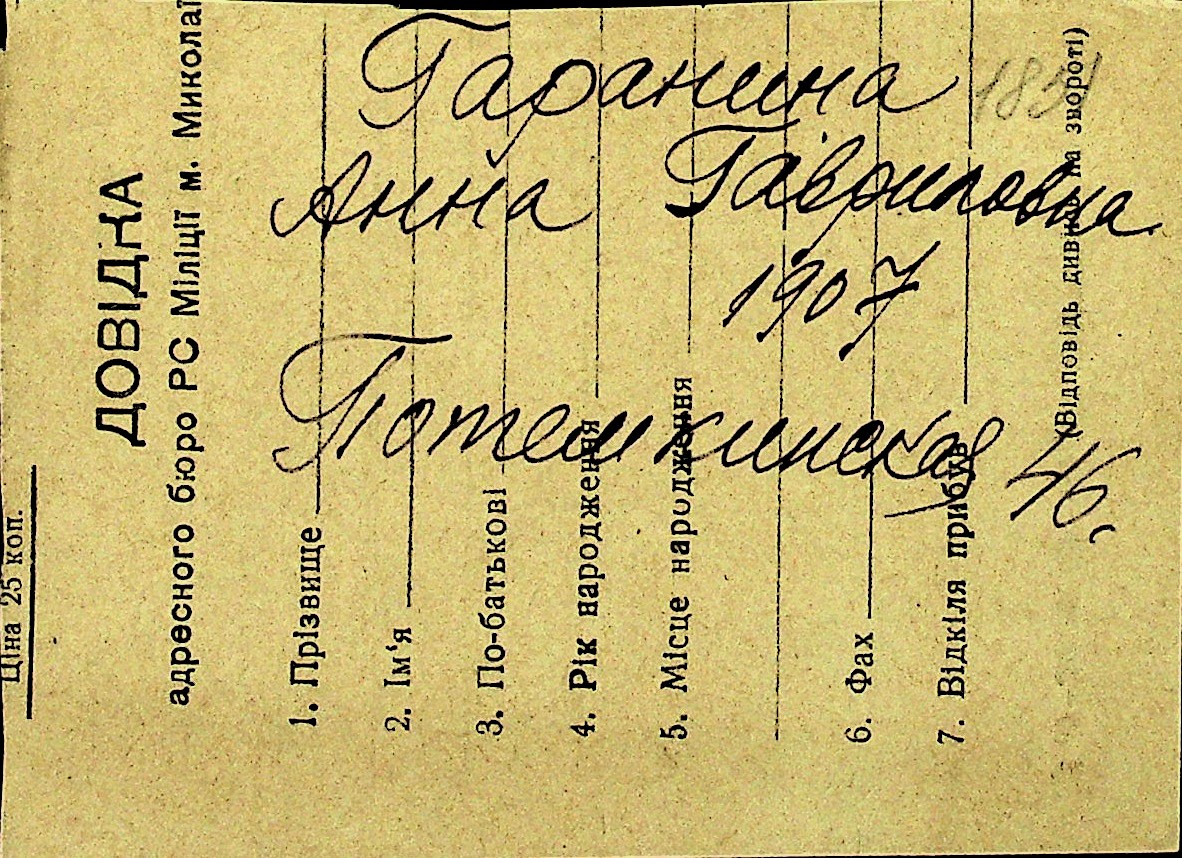 Ціна 25 коп.
ДОВІДКА
адресного бюро РС Міліції м. Миколаї
1. Прізвище
2. Ім'я
3. По-батькові
4. Рік народження
5. Місце народження
6. Фах
7. Відкіля прибув
(Відповідь дивись на звороті)
Гаранина
Анна Гавриловна
1907
Потемкинская 46.